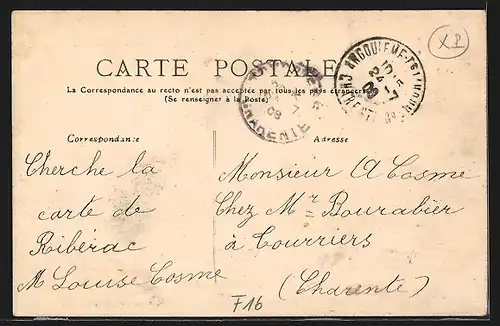 X2
CARTE POSTALE
La Correspondance au recto n'est pas acceptée par tous les pays étrangers
(Se renseigner à la Poste)
ANGOULEME
CHARENTE
08
CHARENTE
Correspondante
Adresse
Cherche la
carte de
Ribérac
M Louise Cosme
Monsieur A Cosme
Chez Mr Bourabier
à Courriers
(Charente)
F16